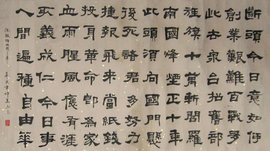 斷頭今日意如何
創業艱難百戰多
此去泉臺招舊部
旌旗十萬斬閻羅
南國烽煙正十年
此頭須向國門懸
後死諸君多努力
捷報飛來當紙錢
投身革命即為家
血雨腥風應有涯
取義成仁今日事
人間遍種自由華